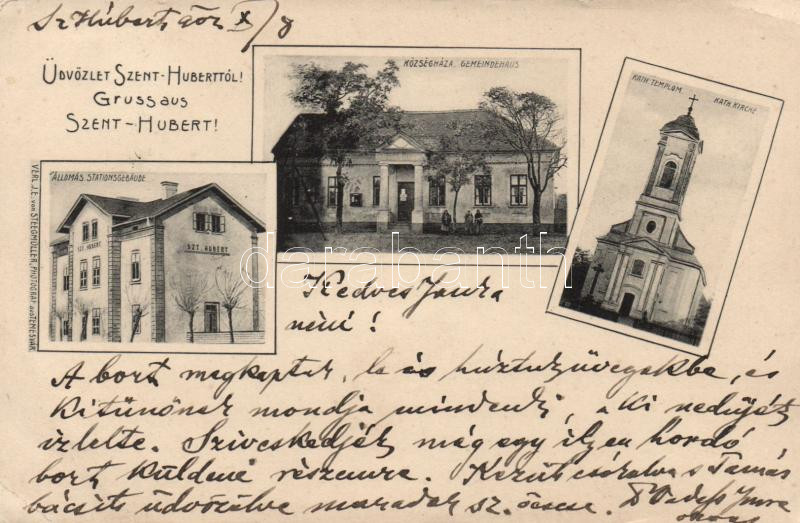 Sz Húbert 902 X/8
ÜDVÖZLET SZENT-HUBERTTÓL!
GRUSS AUS
SZENT-HUBERT!
KÖZSÉGHÁZA, GEMEINDEHAUS
KATH. TEMPLOM. KATH. KIRCHE
ÁLLOMÁS, STATIONSGEBÄUDE
SZT. HUBERT
SZT. HUBERT
VERL. J.E. von STEEGMÜLLER, PHOTOGRAF aus TEMESVÁR.
darabanth
Kedves
néni!
A bort megkaptuk, le is húztuk üvegekbe, és
kitünőnek mondja mindenki, a ki nedüjét
izlelte. Sziveskedjék még egy ilyen hordó
bort küldeni részemre. Kezüket csókolva s Tamás
bácsit üdvözölve maradok sz. öcscse. Dr Imre